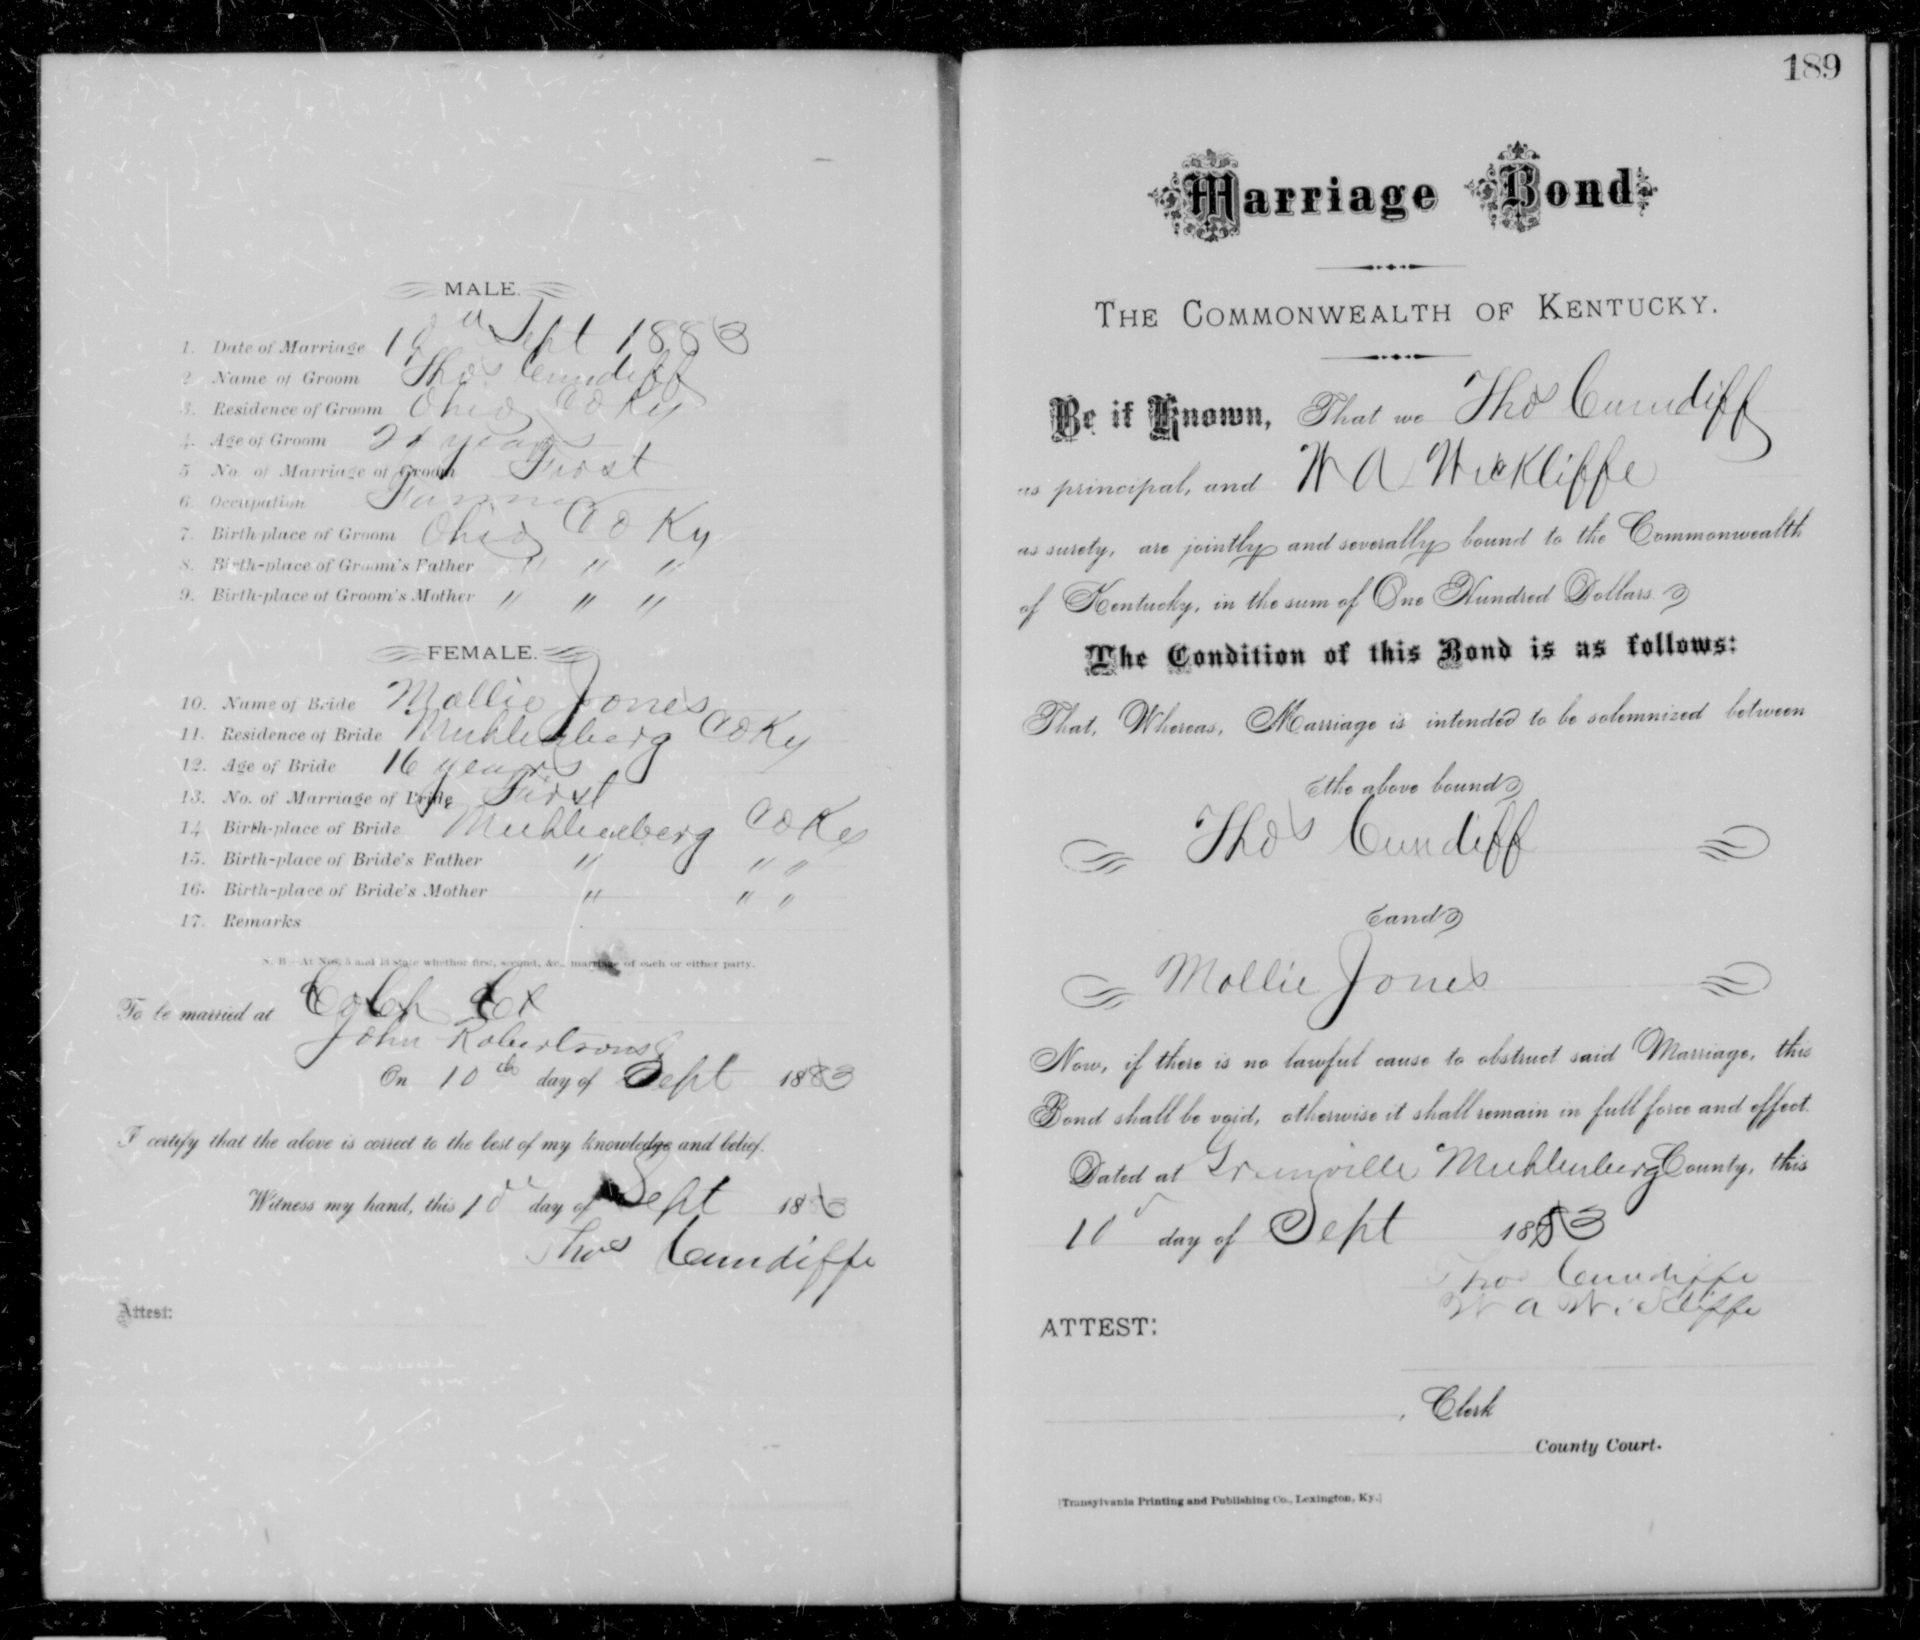 MALE.
1. Date of Marriage 10th Sept 1883
2 Name of Groom Thos Cundiff
3. Residence of Groom Ohio Co Ky
4. Age of Groom years
5 No. of Marriage of Groom First
6. Occupation Farmer
7. Birth-place of Groom Ohio Co Ky
8. Birth-place of Groom's Father " " "
9. Birth-place of Groom's Mother " " "
FEMALE.
10. Name of Bride Mollie Jones
11. Residence of Bride Muhlenberg Co Ky
12. Age of Bride 16 years
13. No. of Marriage of Bride First
14 Birth-place of Bride Muhlenberg Co Ky
15. Birth-place of Bride's Father " " "
16. Birth-place of Bride's Mother " " "
17. Remarks
N. B—At Nos. 5 and 13 state whether first, second, &c., marriage of each or either party.
To be married at
John Robertsons
On 10th day of Sept 1883
I certify that the above is correct to the best of my knowledge and belief.
Witness my hand, this 10 day of Sept 1883
Thos Cundiffe
Attest:
189
Marriage Bond
THE COMMONWEALTH OF KENTUCKY.
Be it Known, That we Thos Cundiff
as principal, and W A Wickliffe
as surety, are jointly and severally bound to the Commonwealth
of Kentucky, in the sum of One Hundred Dollars.
The Condition of this Bond is as follows:
That, Whereas, Marriage is intended to be solemnized between
the above bound
Thos Cundiff
and
Mollie Jones
Now, if there is no lawful cause to obstruct said Marriage, this
Bond shall be void, otherwise it shall remain in full force and effect.
Dated at Greenville Muhlenberg County, this
10 day of Sept 1883
Thos Cundiffe
W A Wickliffe
ATTEST:
, Clerk
County Court.
[Transylvania Printing and Publishing Co., Lexington, Ky.]